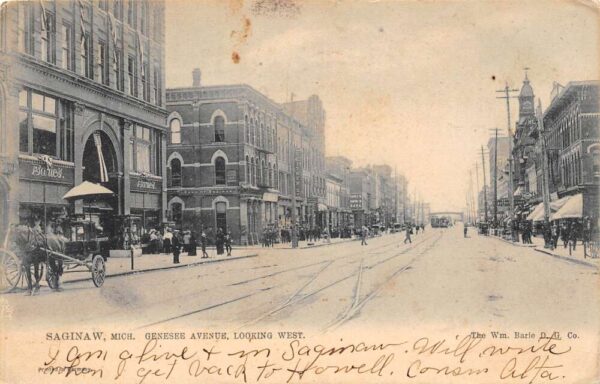 Barie's
Barie's
SAGINAW, MICH. GENESEE AVENUE, LOOKING WEST.
The Wm. Barie D. G. Co.
I am alive & in Saginaw. Will write
when I get back to Howell. Cousin Alta.